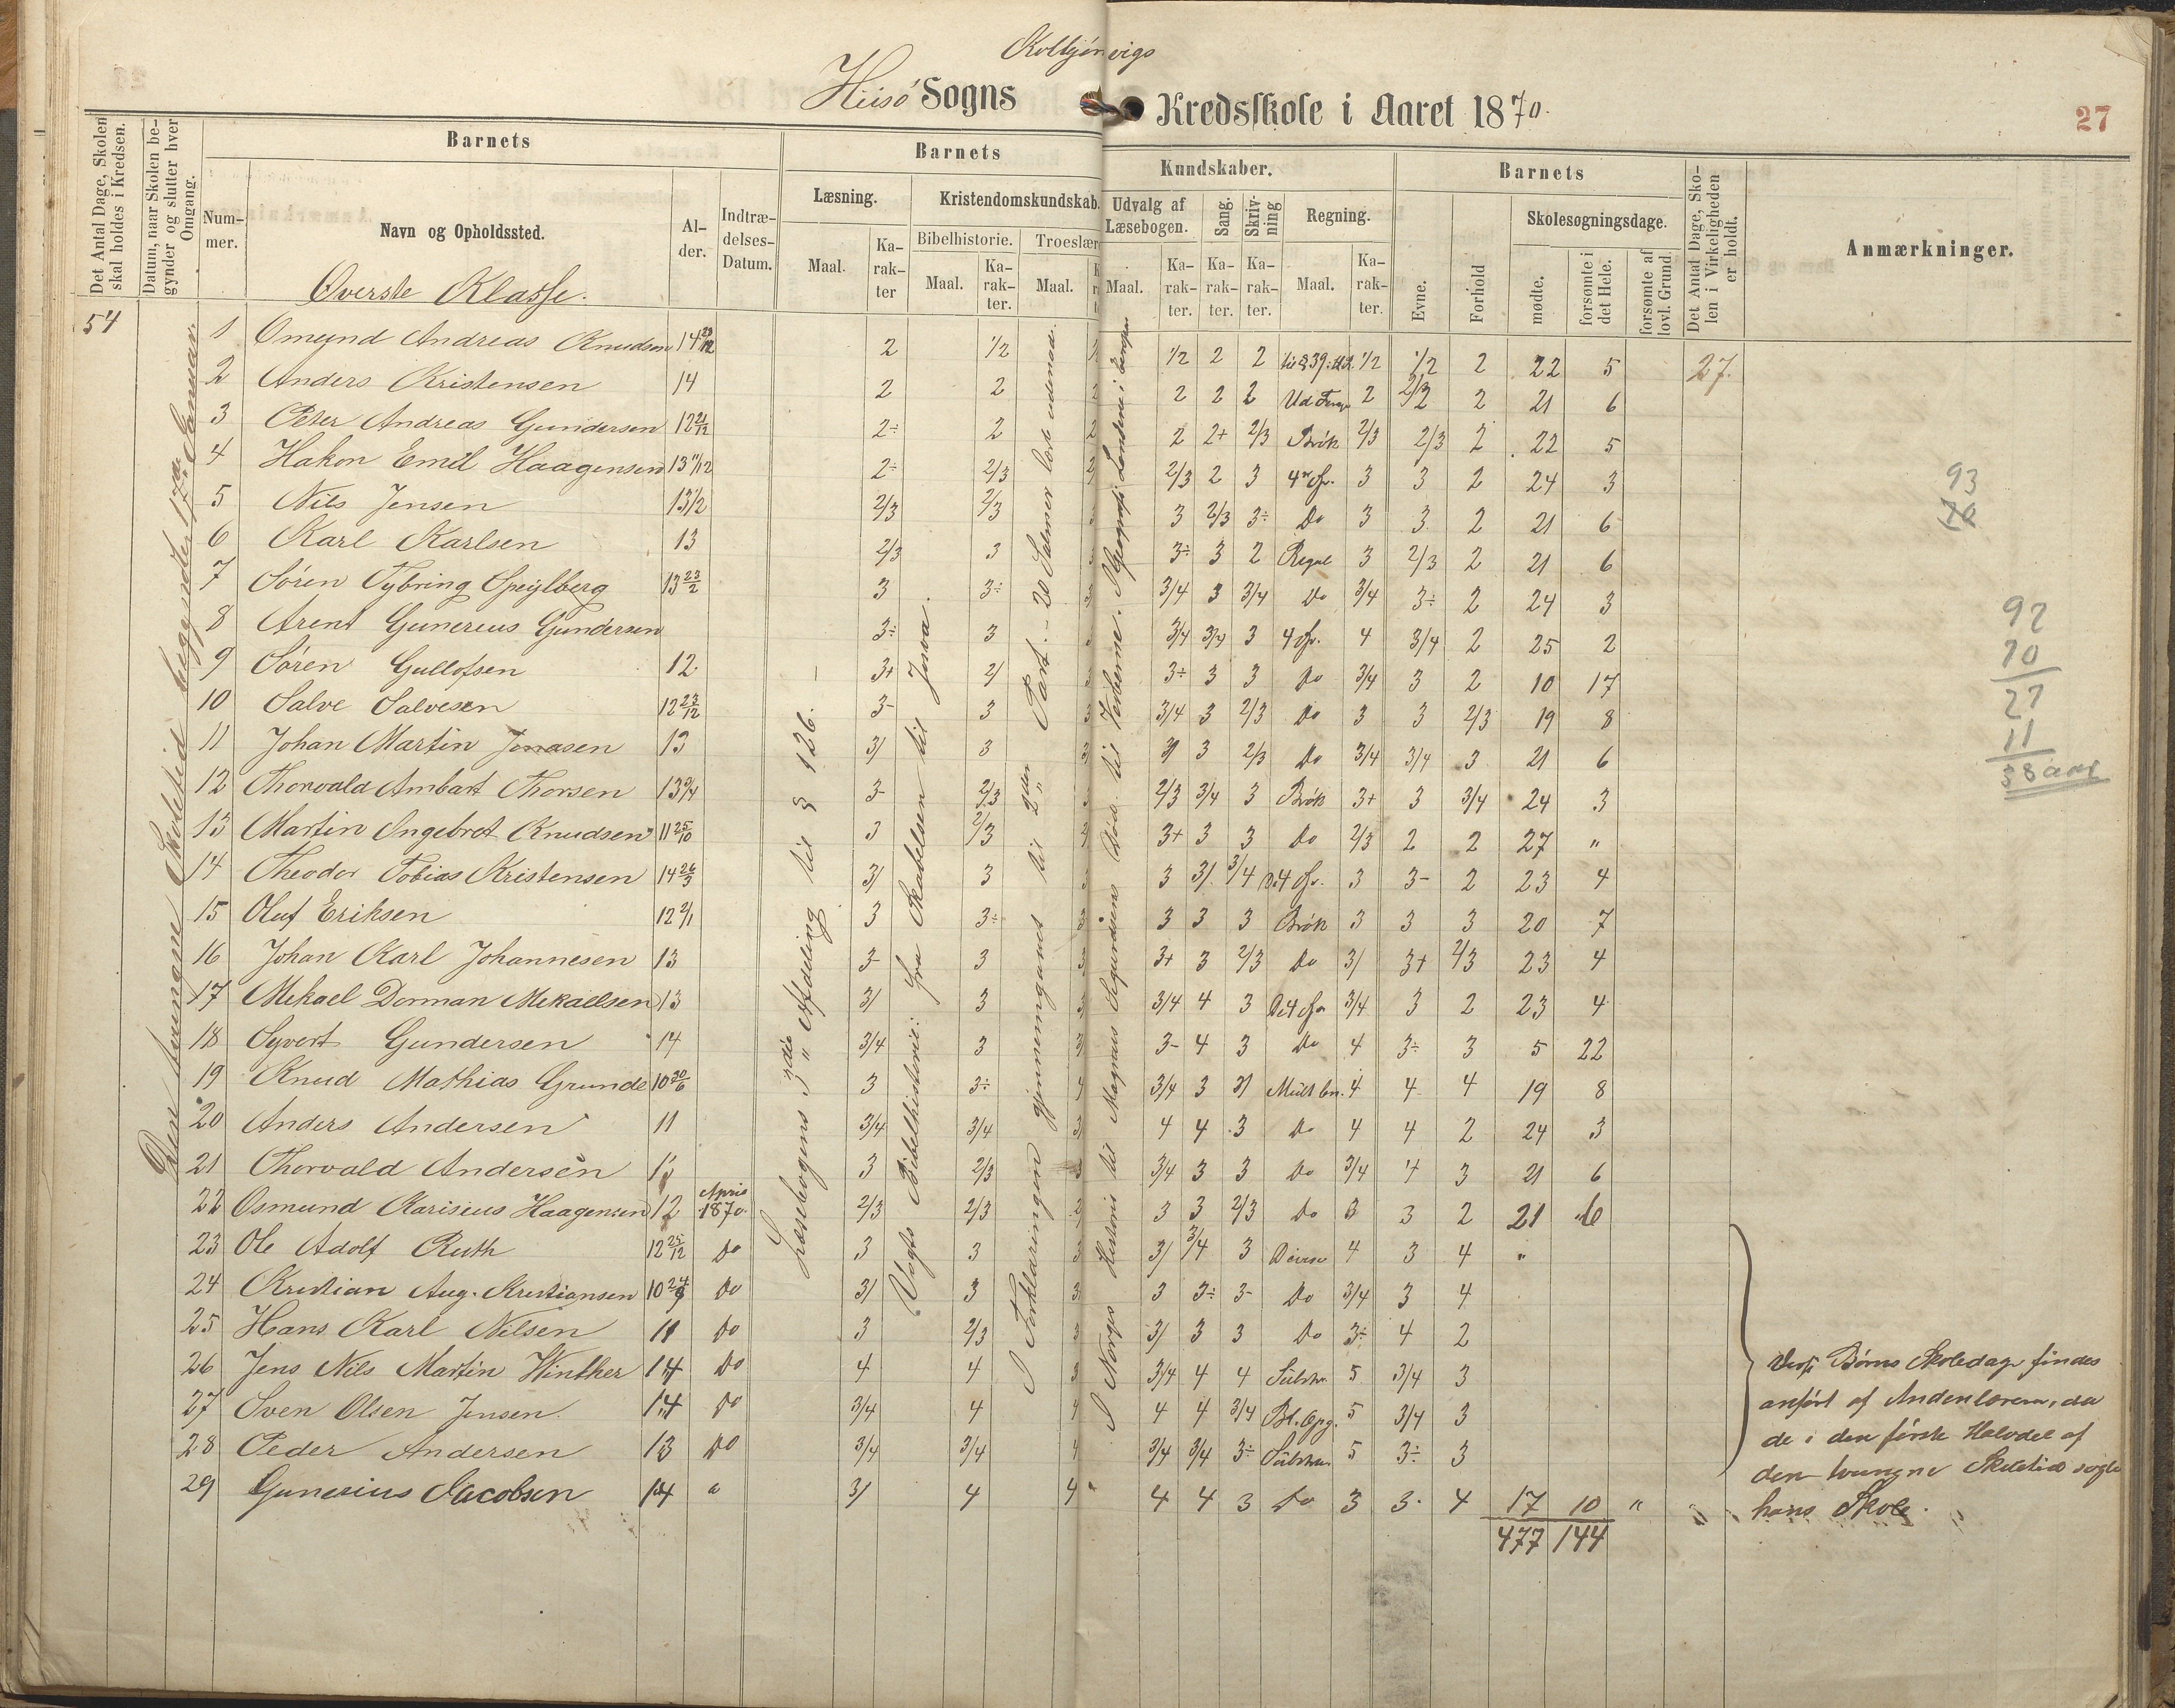 Kolbjörnvigs
Hisö Sogns Kredsskole i Aaret 1870.
27
Det Antal Dage, Skolen skal holdes i Kredsen.
Datum, naar Skolen begynder og slutter hver Omgang.
Barnets
Nummer.
Navn og Opholdssted.
Alder.
Indtrædelses-Datum.
Barnets Kundskaber.
Læsning.
Maal.
Karakter
Kristendomskundskab.
Bibelhistorie.
Maal.
Karakter.
Troeslære
Maal.
Udvalg af Læsebogen.
Maal.
Karakter.
Sang.
Karakter.
Skrivning
Karakter.
Regning.
Maal.
Karakter.
Barnets
Evne.
Forhold
Skolesøgningsdage.
mødte.
forsømte i det Hele.
forsømte af lovl. Grund.
Det Antal Dage, Skolen i Virkeligheden er holdt.
Anmærkninger.
Överste Klasse.
54
Den tvungne Skoletid begyndte 17de Januar.
Læsebogens 3die Afdeling til § 126.
Vogts Bibelhistorie: fra Skabelsen til Josva.
I Forklaringen gjennemgaaet til 2den Part. - 20 Salmer lærte udenad.
I Norges Historie til Magnus Sigurdsens Död til Fredserne. I Geografi Landene i Europa
1 Omund Andreas Knudsen 14 23/12 2 1/2 1/2 2 2 til § 39 1/2 1/2 2 22 5 27.
2 Anders Kristensen 14 2 2 2 2 2 2 2 2/3 2 21 6
3 Peter Andreas Gundersen 12 21/12 2÷ 2 2 2 2+ 2/3 Brök 2/3 2/3 2 22 5
4 Hakon Emil Haagensen 13 11/12 2÷ 2/3 2/3 2 3 3 3 2 24 3
5 Nils Jensen 13 1/2 2/3 2/3 3 2/3 3÷ Do 3 3 2 21 6
6 Karl Karlsen 13 2/3 3 3÷ 3 2 Regul 3 2/3 2 21 6
7 Sören Tybring Speilberg 13 23/2 3 3÷ 3/4 3 3/4 Do 3/4 3÷ 2 24 3
8 Arent Gunerius Gundersen 3÷ 3 3/4 3/4 3 4 3/4 2 25 2
9 Sören Gullofsen 12. 3+ 2/ 3÷ 3 3 Do 3/4 3 2 10 17
10 Salve Salvesen 12 23/12 3- 3 3/4 3 2/3 Do 3 3 2/3 19 8
11 Johan Martin Jonasen 13 3/ 3 3/ 3 2/3 Do 3/4 3/4 3 21 6
12 Thorvald Ambart Thorsen 13 3/4 3- 2/3 2/3 3/4 3 Brök 3+ 3 3/4 24 3
13 Martin Ingebret Knudsen 11 25/10 3 2/3 3+ 3 3 Do 2/3 2 2 27 "
14 Theodor Tobias Kristensen 14 26/3 3/ 3 3 3/ 3/4 3 3- 2 23 4
15 Oluf Eriksen 12 2/1 3 3÷ 3 3 3 3 Brök 3 3 3 20 7
16 Johan Karl Johannesen 13 3- 3 3+ 3 2/3 Do 3/ 3+ 2/3 23 4
17 Mikael Dorman Mikaelsen 13 3/ 3 3/4 4 3 3/4 3 2 23 4
18 Syvert Gundersen 14 3/4 3 3- 4 3 Do 4 3÷ 3 5 22
19 Knud Mathias Grunde 10 30/6 3 3÷ 4 3/4 3 3/ 4 4 4 19 8
20 Anders Andersen 11 3/4 3/4 4 4 3 Do 4 4 2 24 3
21 Thorvald Andersen 3 2/3 3/4 3 3 Do 3/4 4 3 21 6
22 Osmund Karisius Haagensen 12 April 1870. 2/3 2/3 3 3 2/3 Do 3 3 2 21 6
23 Ole Adolf Ruth 12 25/12 Do 3 3 3 3/ 3/4 3 4 3 4 "
24 Kristian Aug. Kristiansen 10 24/9 Do 3/ 3 3 3÷ 3- Do 3/4 3 4
25 Hans Karl Nilsen 11 Do 3 2/3 3/ 3 3 Do 3÷ 4 2
26 Jens Nils Martin Winther 14 Do 4 4 3 3/4 4 4 5 3/4 3
27 Sven Olsen Jensen. 14 Do 3/4 4 4 4 4 3/4 5 3/4 3
28 Peder Andersen 13 Do 3/4 3/4 4 3/4 3/4 3÷ 5 3÷ 3
29 Gunerius Jacobsen 14 3/ 4 4 4 4 3 Do 3 3 4 17 10 "
477 144
93
92
70
27
11
38
Disse Börns Skoledage findes
anfört af Andenlæreren, da
de i den förste Halvdel af
den tvungne Skoletid sögte
hans Skole.